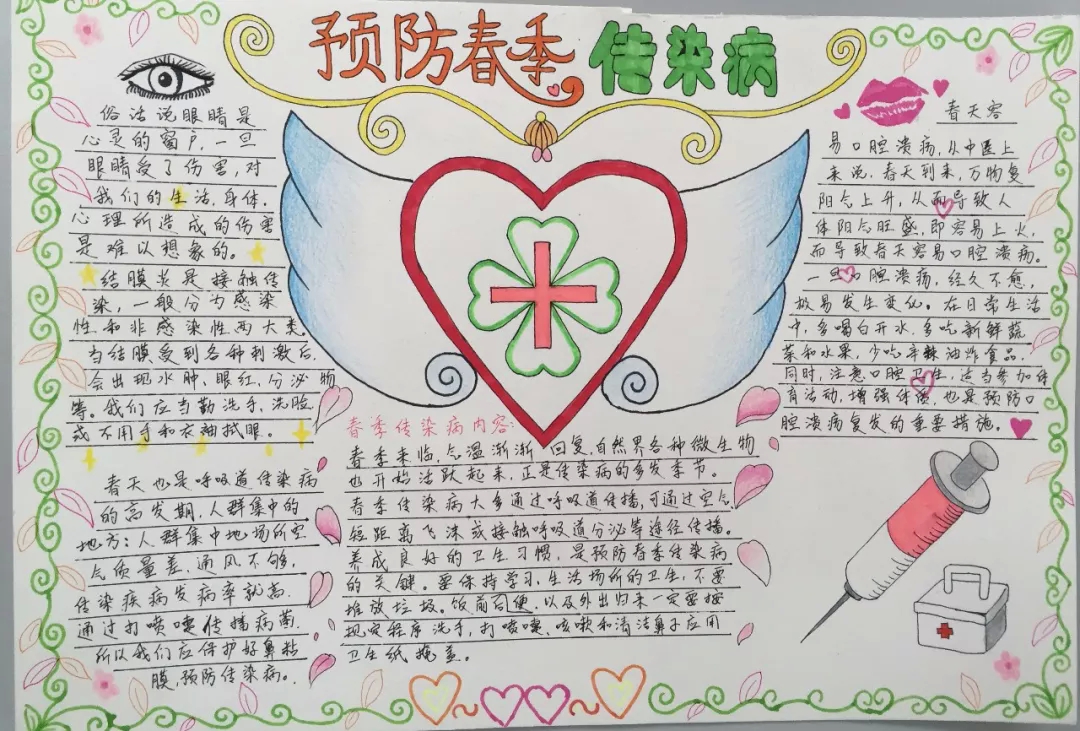 预防春季传染病
俗话说眼睛是
心灵的窗户,一旦
眼睛受了伤害,对
我们的生活,身体,
心理所造成的伤害
是难以想象的。
结膜炎是接触传
染,一般分为感染
性和非感染性两大类。
当结膜受到各种刺激后,
会出现水肿、眼红,分泌物
等。我们应当勤洗手,洗脸,
或不用手和衣袖拭眼。
春天也是呼吸道传染病
的高发期,人群集中的
地方:人群集中地场所空
气质量差,通风不够,
传染疾病发病率就高.
通过打喷嚏传播病菌.
所以我们应保护好鼻粘
膜,预防传染病。
春季传染病内容:
春季来临,气温渐渐回复,自然界各种微生物
也开始活跃起来,正是传染病的多发季节。
春季传染病大多通过呼吸道传播,可通过空气
短距离飞沫或接触呼吸道分泌等途径传播。
养成良好的卫生习惯,是预防春季传染病
的关键。要保持学习、生活场所的卫生,不要
堆放垃圾。饭前百便,以及外出归来一定要按
规定程序洗手,打喷嚏、咳嗽和清洁鼻子应用
卫生纸掩盖。
春天容
易口腔溃疡,从中医上
来说,春天到来,万物复
阳气上升,从而导致人
体阳气旺盛,即容易上火,
而导致春天容易口腔溃疡。
一旦口腔溃疡,经久不愈,
极易发生变化。在日常生活
中,多喝白开水,多吃新鲜蔬
菜和水果,少吃辛辣油炸食品,
同时,注意口腔卫生,适当参加体
育活动,增强体质,也是预防口
腔溃疡复发的重要措施。